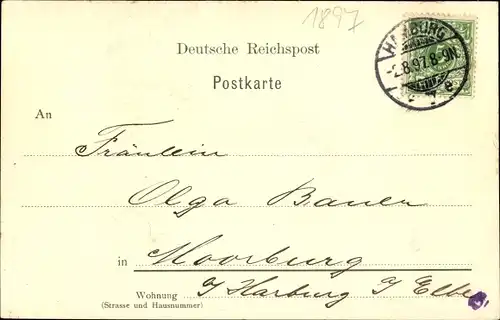 1897
HAMBURG
-2.8.97.8-9N.
e
Deutsche Reichspost
Postkarte
An
Fräulein
Olga Bauer
in Moorburg
Wohnung
(Strasse und Hausnummer)
Harburg Elbe